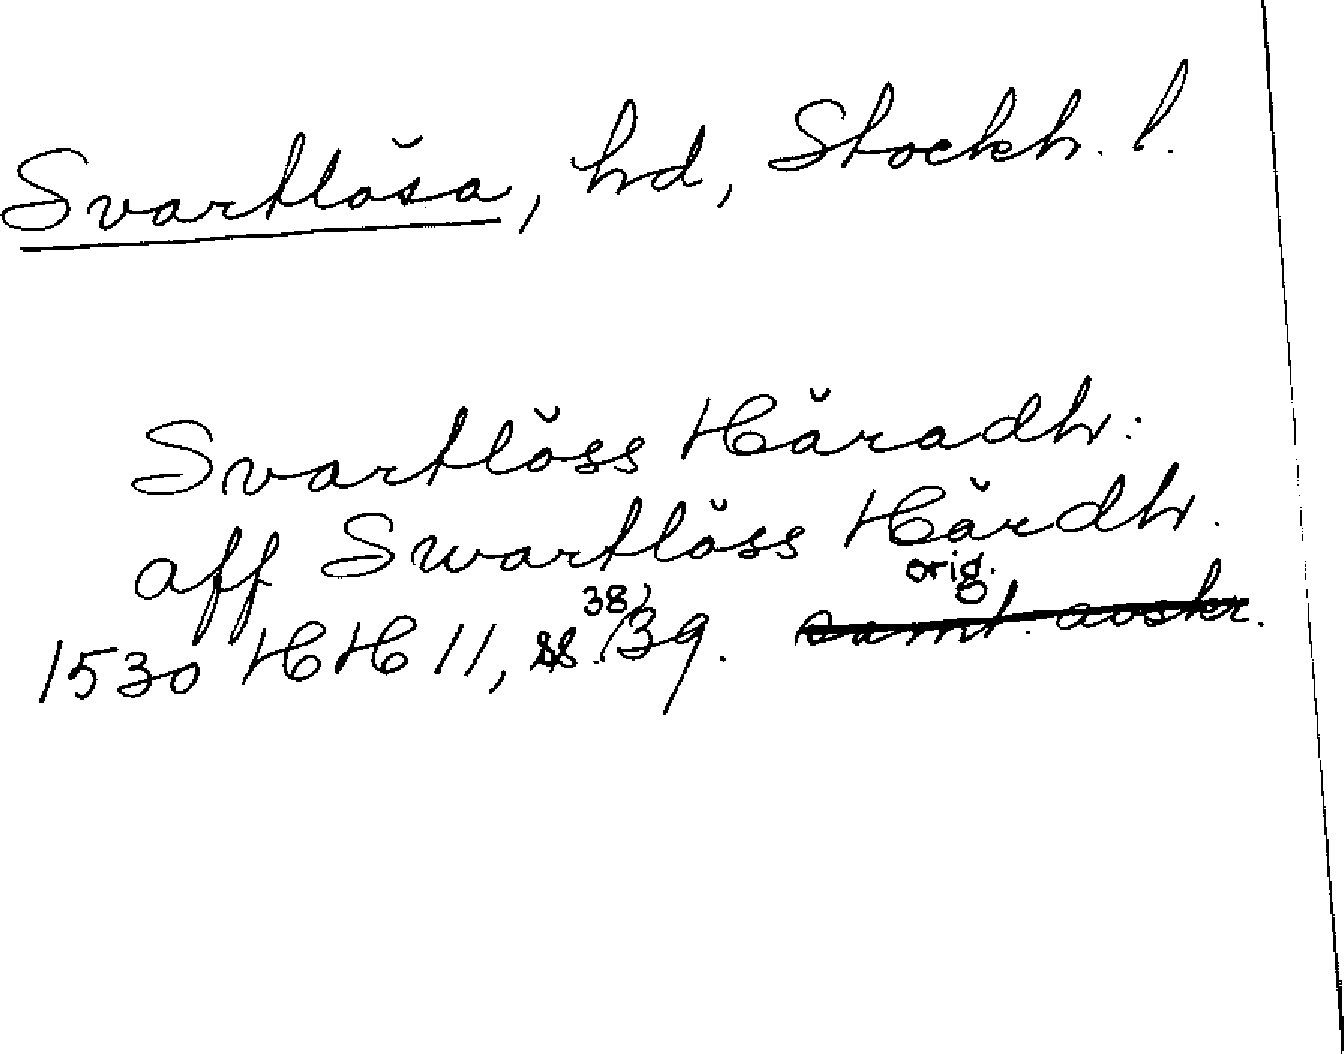 Svartlösa, hd, Stockh. l.
Svartlöss Häradh:
aff Swartlöss Härdh.
orig.
1530 HH 11, ss. 38/39. samt. avskr.